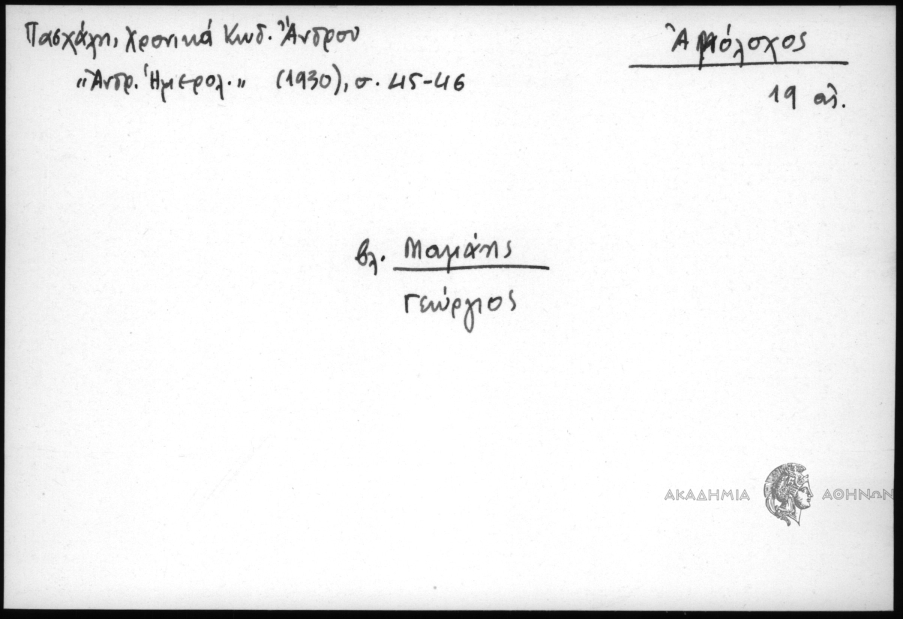 Πασχάλη, Χρονικά Κωδ. Ἄνδρου
"Ἀνδρ. Ἡμερολ." (1930), σ. 45-46
Ἀμόλοχος
19 αἰ.
βλ. Μαμάης
Γεώργιος
ΑΚΑΔΗΜΙΑ ΑΘΗΝΩΝ